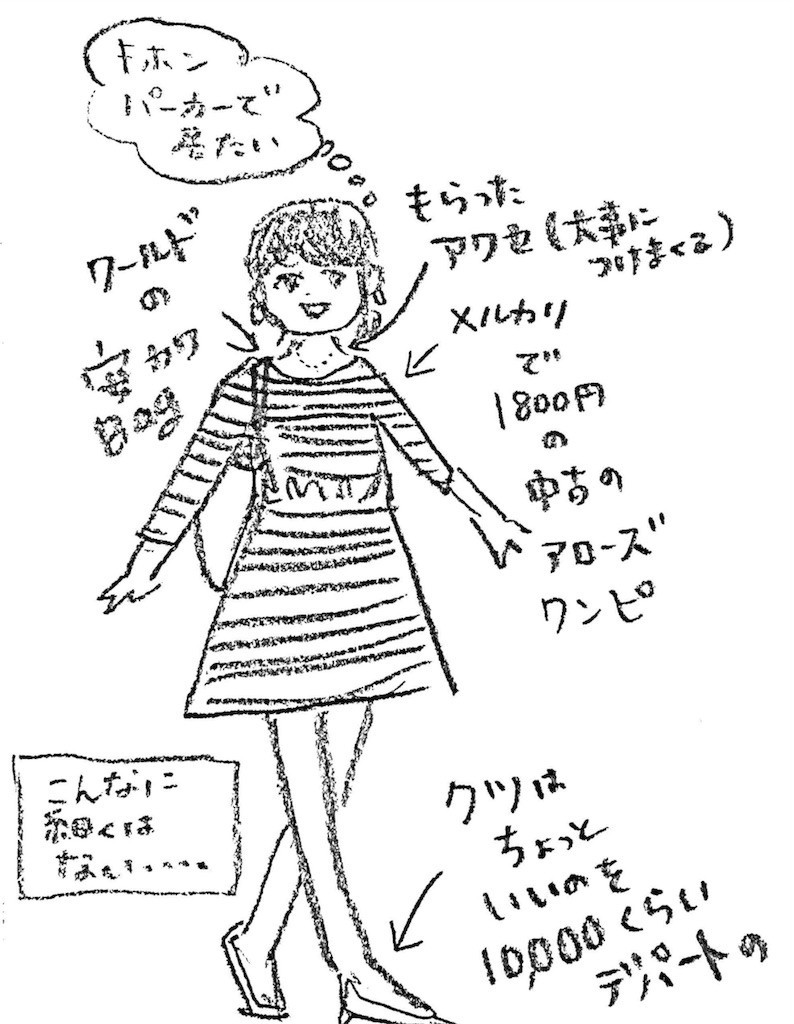 キホン
パーカーで
居たい
もらった
アクセ(大事に
つけまくる)
ワールド
の
安カワ
Bag
メルカリ
で
1800円
の
中古の
アローズ
ワンピ
こんなに
細くは
ない....
クツは
ちょっと
いいのを
10,000くらい
デパートの